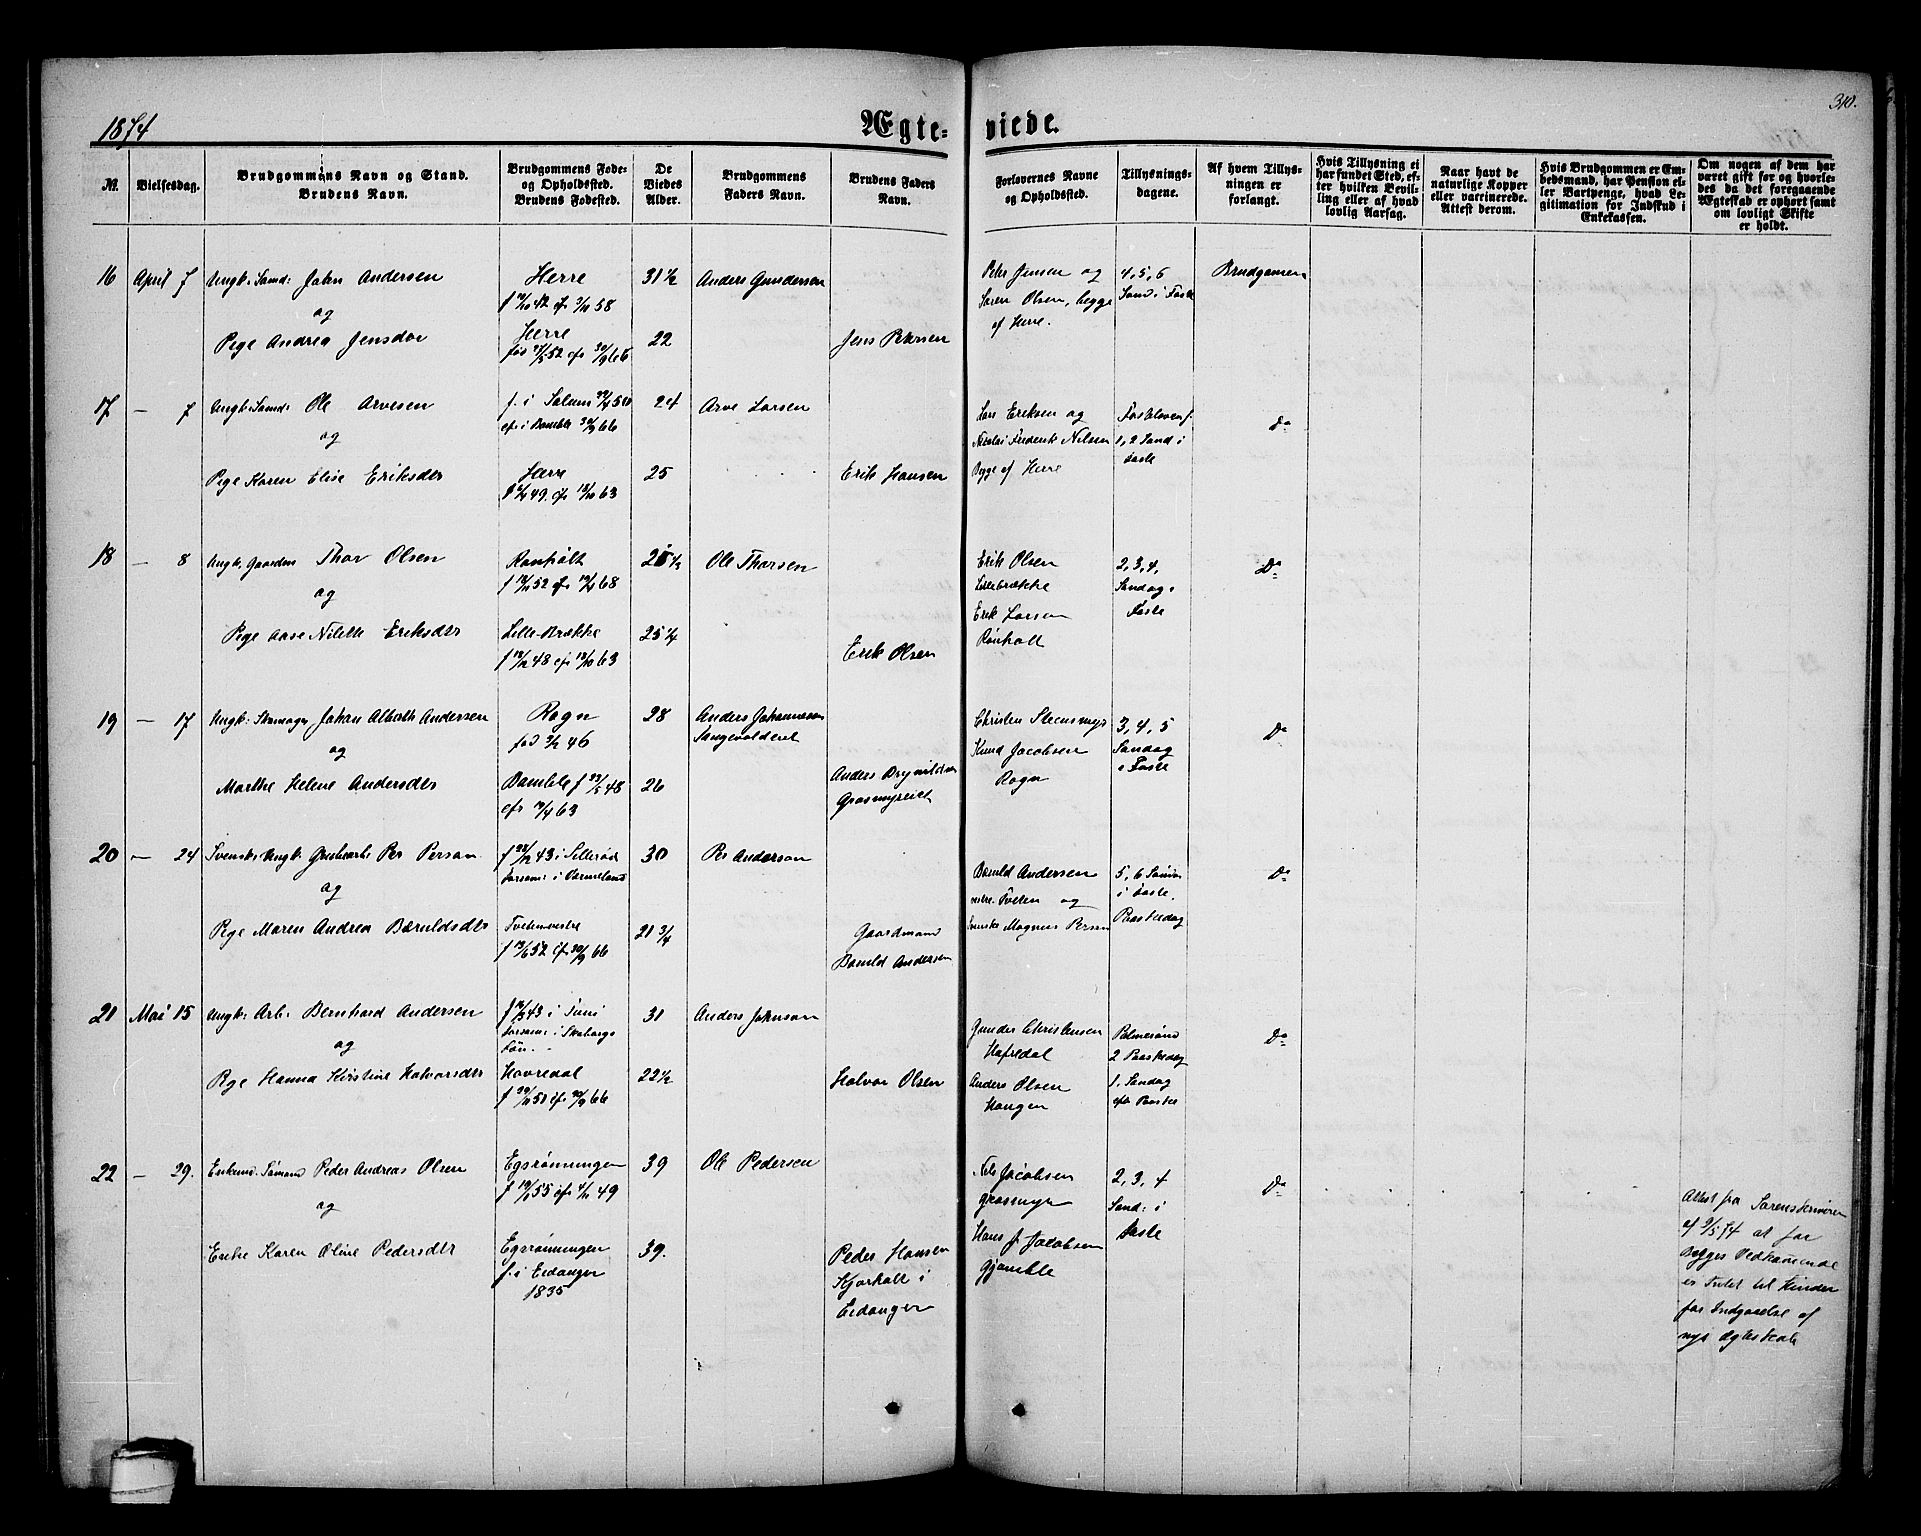 310.
1874
Ægte-
viede.
N.
Vielsesdag.
Brudgommens Navn og Stand.
Brudens Navn.
Brudgommens Føde-
og Opholdsted.
Brudens Fødested.
De
Viedes
Alder.
Brudgommens
Faders Navn.
Brudens Faders
Navn.
Forlovernes Navne
og Opholdsted.
Tillysnings-
dagene.
Af hvem Tillys-
ningen er
forlangt.
Hvis Tillysning ei
har fundet Sted, ef-
ter hvilken Bevil-
ling eller af hvad
lovlig Aarsag.
Naar havt de
naturlige Kopper
eller vaccinerede.
Attest derom.
Hvis Brudgommen er Em-
bedsmand, har Pension el-
ler Vartpenge, hvad Le-
gitimation for Indskud i
Enkekassen.
Om nogen af dem har
været gift før og hvorle-
des da det foregaaende
Ægteskab er ophørt samt
om lovligt Skifte
er holdt.
16 April 7 Ungk: Sømd: John Andersen
og
Pige Andrea Jensdtr
Herre
Herre
31 1/2
22
Anders Gundersen
Jens Petersen
Peter Jensen og
Søren Olsen, begge
af Herre.
4, 5, 6
Sønd i Faste
Brudgommen
17 — 7 Ungk: Sømd: Ole Arvesen
og
Pige Karen Elise Eriksdtr
f. i Solum
Herre
24
25
Arve Larsen
Erik Hansen
Eriksen og
Nicolai Frederik Nilsen
Begge af Herre
Fastelavensf.
1, 2 Sønd i
Faste
Do
18 — 8 Ungk: Gaardm Thor Olsen
og
Pige Aase Nilille Eriksdtr
Rønholt
Lille-Brække
25 1/4
Ole Thorsen
Erik Olsen
Erik Olsen
Lillebrække
Erik Larsen
Rønholt
2, 3, 4,
Søndag i
Faste
Do
19 — 17 Ungk: Skomager Johan Albreth Andersen
og
Marthe Helene Andersdtr
Rogn
fød 3/2 46
Bamble
28
26
Anders Johannesen
Anders Brynildsen
Grasmyreiet
Christen Steensmyr
Knud Jacobsen
Rogn
3, 4, 5
Søndag
i Faste
Do
20 — 24 Svensk Ungk: Grubearb: Per Person
og
Pige Maren Andrea Bæruldsdtr
Tveten
30
21 3/4
Per Anderson
Gaardmand
Bæruld Andersen
Bæruld Andersen
nedre Tveten og
Svenske Magnus Person
5, 6 Sønd
i Faste,
Paaskedag
Do
21 Mai 15 Ungk: Arb: Bernhard Andersen
og
Pige Hanna Kirstine Halvorsdtr
Skaborgs
Län.
Havredal
31
22 1/2
Anders Johnson
Halvor Olsen
Gunder Christensen
Hafredal
Anders Olsen
Haugen
Palmesønd
2 Paaskedag
1. Søndag
eft Paaske
Do
22 — 29. Enkemd. Sømand Peder Andreas Olsen
og
Enke Karen Oline Pedersdtr
Egsrønningen
Egsrønningen
f. i Eidanger
1835
39
39.
Ole Pedersen
Peder Hansen
Kjørholt i
Eidanger
Nils Jacobsen
Grasmyr
Hans J. Jacobsen
Gjømble
2, 3, 4
Sønd: i
Faste
Do
Attest fra Sorenskriveren
af 9/5 74 at for
Begges Vedkommende
er Intet til Hinder
for Indgaaelse af
nyt Ægteskab